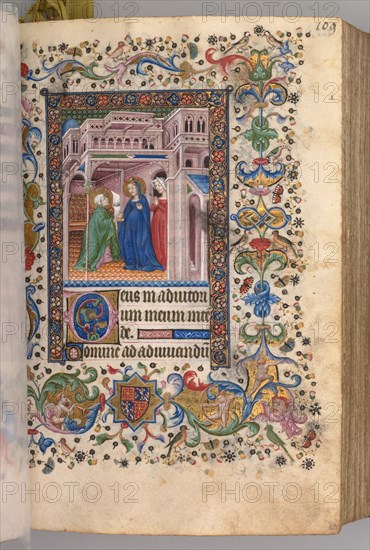 109
Deus in adiutori
um meum intē
de.
Domine ad adiuvandū
PHOTO12